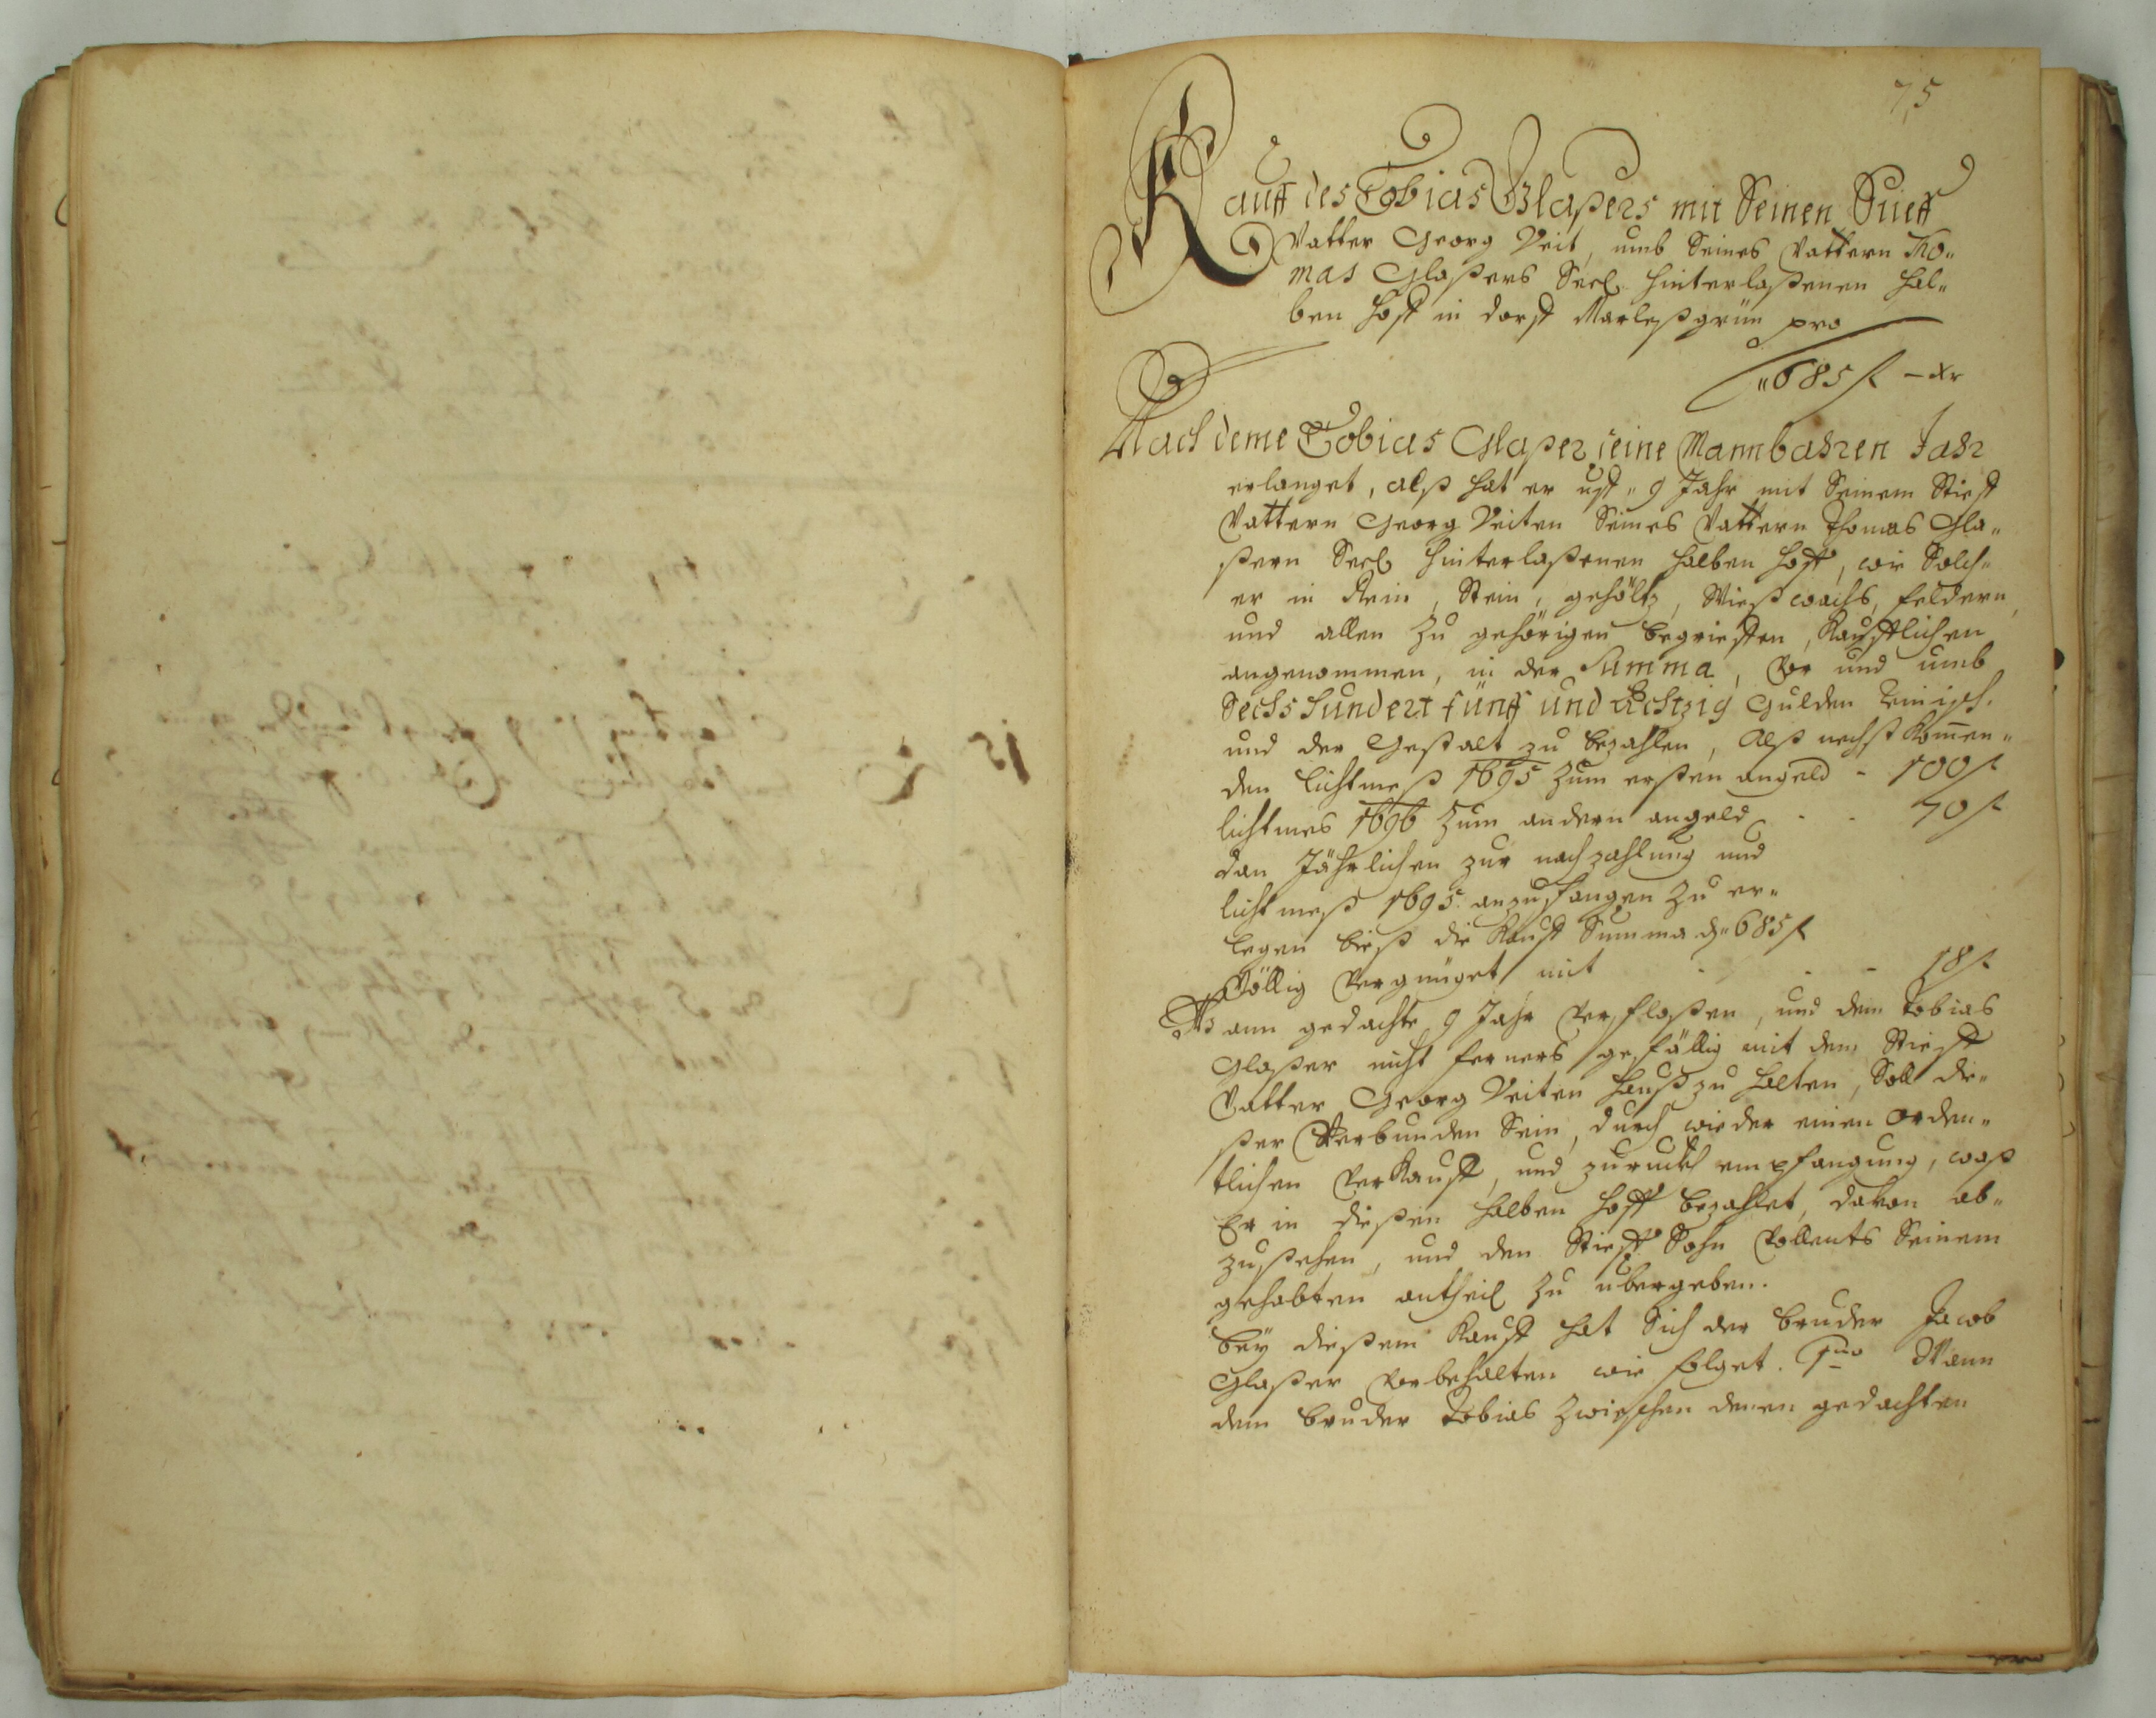 75
Kauff des Tobias Glaßers mit Seinen Stieff
Vatter Georg Veit, umb Seines Vattern Tho„
mas Glaßers Seel. hinterlaßenen hal„
ben Hoff in dorff Marleßgrün pro
„685 f – xr
Nach deme Tobias Glaßer seine Mannbahren Jahr
erlanget, alß hat er uff „9 Jahr mit Seinem Stieff
Vattern Georg Veiten Seines Vattern Thomas Gla„
ßern Seel hinterlaßenen halben Hoff, wie Solch„
er in Rein, Stein, gehöltz, Wießwachs, feldern,
und allen zu gehörigen begrieffen, Kaufflichen
angenommen, in der Summa, vor und umb
Sechshundert fünff und Achtzig Gulden reinisch.
und der Gestalt zu bezahlen, Alß nechst Kommen„
den lichtmeß 1695 zum ersten angeld - 100 f
lichtmes 1696 zum andern angeld - - 70 f
dan Jährlichen zur nachzahlung und
lichtmeß 1695. anzufangen zu er„
legen bieß die Kauff Summa d. 685 f
Völlig vergnüget mit - - - 18 f
Wann gedachte 9 Jahr verfloßen, und dem Tobias
Glaßer nicht ferners gefällig mit dem Stieff
Vatter Georg Veiten hauß zu halten, Soll die„
ßer Verbunden Sein, durch wieder einen orden„
tlichen verkauff, und zuruckh empfangung, waß
Er in dießen halben Hoff bezahlet, davon ab„
zustehen, und den Stieff Sohn vollents Seinem
gehabten antheil zu ubergeben.
bey dießem Kauff hat Sich der bruder Jacob
Glaßer vorbehalten wie folget. 1mo Wann
dem bruder Tobias zwieschen denen gedachten